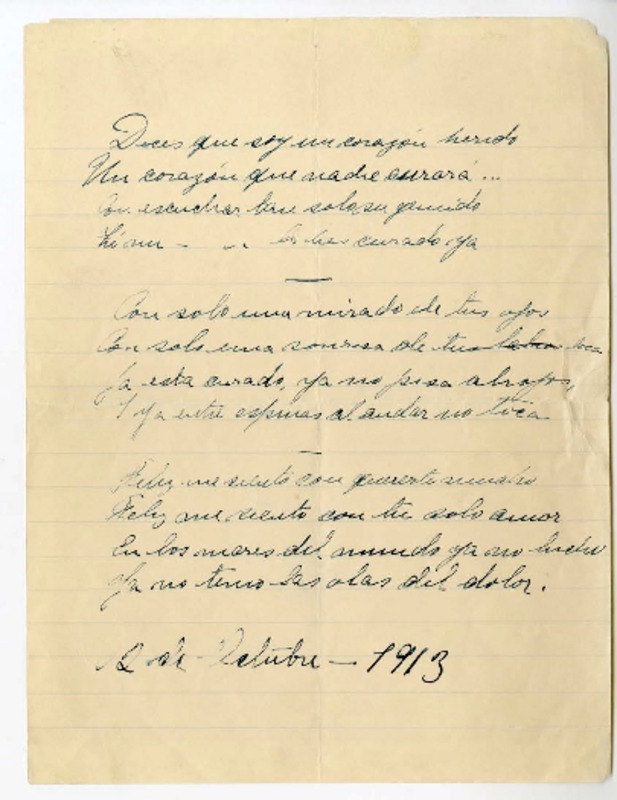 Dices que soy un corazón herido
Un corazón que nadie curará...
Con escuchar tan solo su gemido
lo has curado ya
Con solo una mirada de tus ojos
Con solo una sonrisa de tu boca
Ya esta curado, ya no pisa abrojos,
Y ya entre espinas al andar no toca
Feliz me siento con quererte mucho
Feliz me siento con tu solo amor
En los mares del mundo ya no lucho
Ya no temo las olas del dolor.
12 de Octubre - 1913